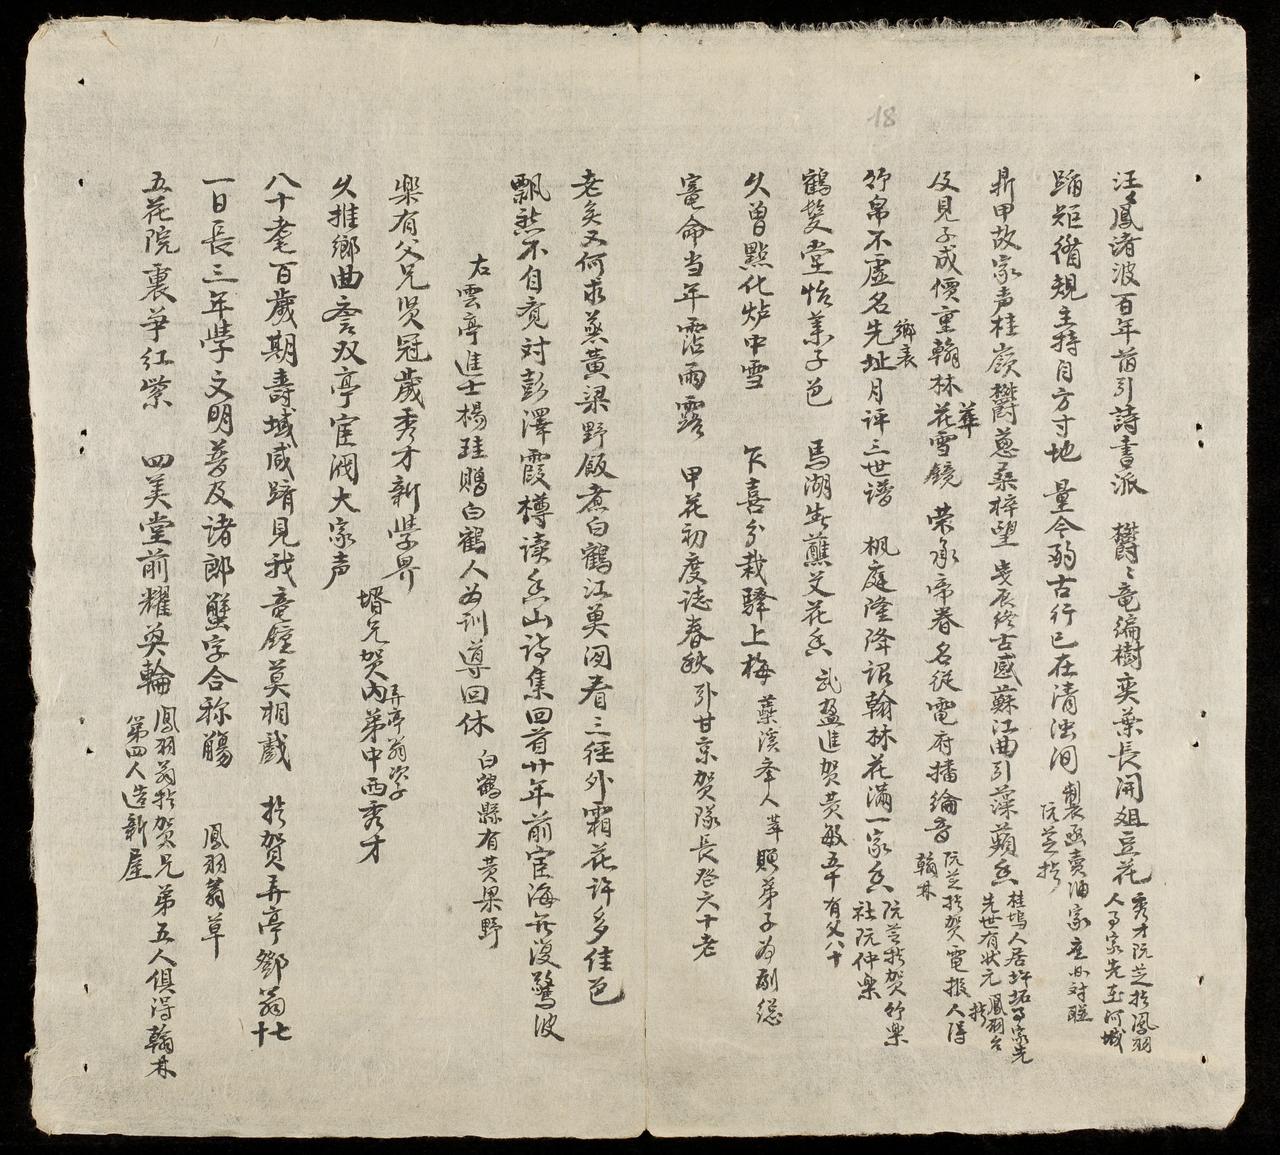 汪〻鳳渚波百年前引詩書派　欝〻竜編樹奕葉長開俎豆花 秀才阮芝拤鳳羽
人事家先至河城
踊矩循規主持自方寸地　量今酌古行已在清浊间 製函賣油家在此对聯
阮芝拤
鼎甲故家声桂嶺欝蔥桑梓望　歲辰終古感蘇江曲引藻蘋香 桂塢人居許姑事家先
先世有狀元 鳳羽台拤
及見子成價重翰林花雪鏡　荣承帝眷名從電府播綸音 阮芝拤贺電报人得
翰林
竹帛不虛名先址鄉表月评三世谱　枫庭隆降诏翰林花滿一家香 阮芝拤贺竹樂
社阮仲樂
鶴髮堂怡萊子邑　馬湖艼蘸艾花香 武盈進贺黄敏五十有父八十
久曾點化炉中雪　乍喜分栽驛上梅 蘂溪举人莘贈弟子为副總
寔命当年霑雨露　甲花初度誌春秋 引甘京贺隊長登六十老
老矣又何求蒸黃梁野飯煮白鶴江莫囘看三徑外霜花许多佳色
飄然不自覔对彭澤霞樽读香山诗集回首廿年前宦海無復驚波
右雲亭進士楊珪贈白鶴人为训導回休 白鶴縣有黄梁野
樂有父兄贤冠歲秀才新學界
久推鄉曲誉双亭宦阀大家声 壻兄贺内弟中西秀才
弄亭翁次子
八十耄百歲期壽域咸躋見我音鐘莫相戲　拤贺弄亭鄧翁七十
一日長三年學文明普及诸郎蟹字合称觴　鳳羽翁草
五花院裏爭紅紫　四美堂前耀奐輪 鳳羽翁拤贺兄弟五人俱得翰林
第四人造新屋